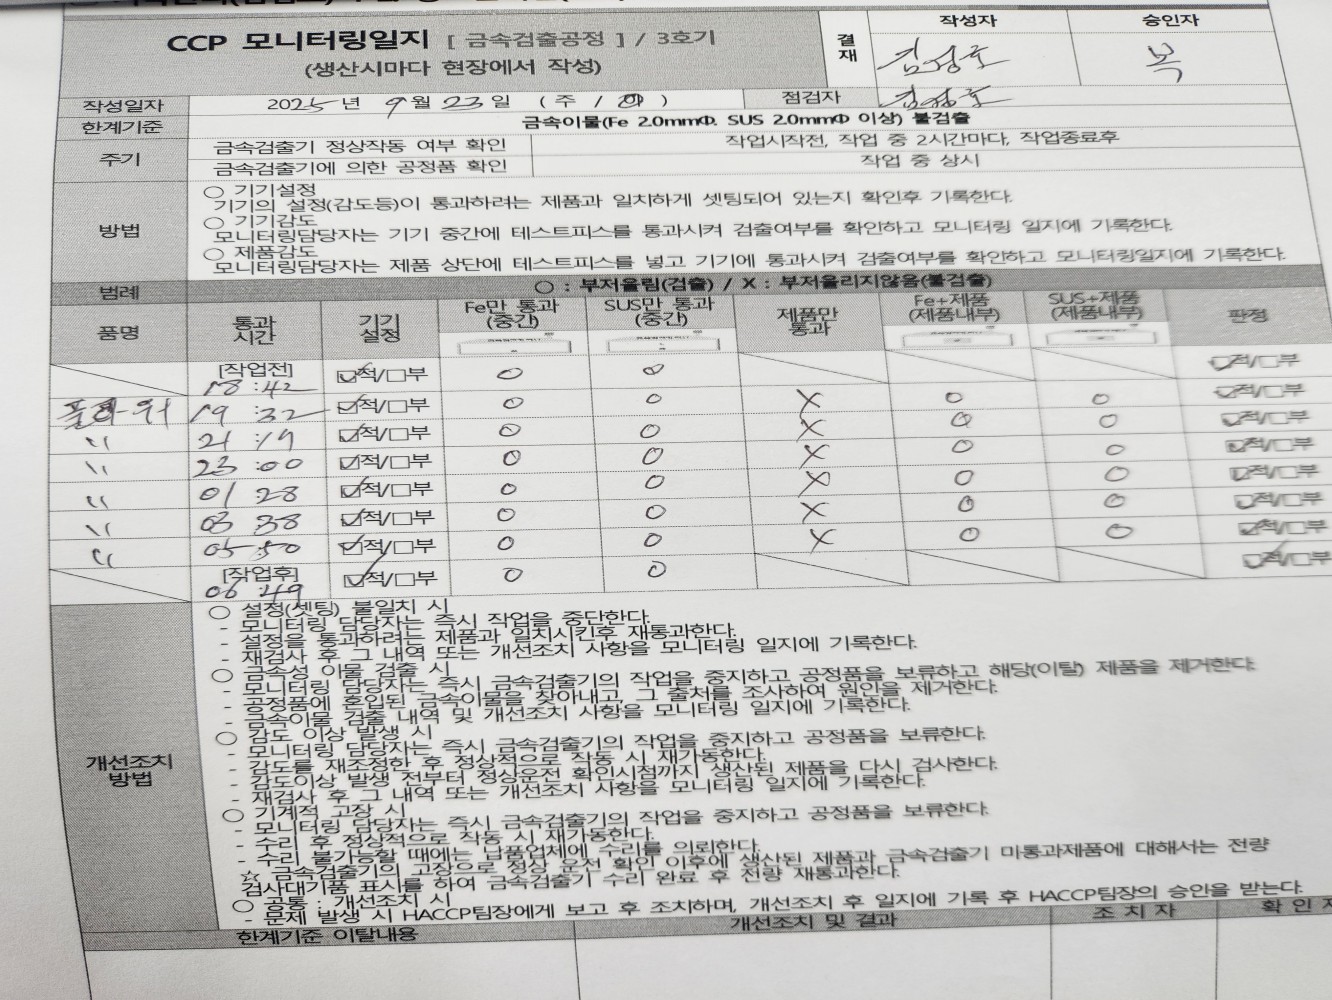 CCP 모니터링일지 [ 금속검출공정 ] / 3호기
(생산시마다 현장에서 작성)
결재 작성자 승인자
복
작성일자 2025년 9월 23일 ( 주 / 야 ) 점검자
한계기준 금속이물(Fe 2.0mmΦ. SUS 2.0mmΦ 이상) 불검출
주기 금속검출기 정상작동 여부 확인 작업시작전, 작업 중 2시간마다, 작업종료후
금속검출기에 의한 공정품 확인 작업 중 상시
방법
○ 기기설정
기기의 설정(감도등)이 통과하려는 제품과 일치하게 셋팅되어 있는지 확인후 기록한다.
○ 기기감도
모니터링담당자는 기기 중간에 테스트피스를 통과시켜 검출여부를 확인하고 모니터링 일지에 기록한다.
○ 제품감도
모니터링담당자는 제품 상단에 테스트피스를 넣고 기기에 통과시켜 검출여부를 확인하고 모니터링일지에 기록한다.
범례 ○ : 부저울림(검출) / X : 부저울리지않음(불검출)
품명 통과시간 기기설정 Fe만 통과(중간) SUS만 통과(중간) 제품만통과 Fe+제품(제품내부) SUS+제품(제품내부) 판정
[작업전] 18:42 ☑적/□부 O O ☑적/□부
19:32 ☑적/□부 O O X O O ☑적/□부
〃 21:19 ☑적/□부 O O X O O ☑적/□부
〃 23:00 ☑적/□부 O O X O O ☑적/□부
〃 01 28 ☑적/□부 O O X O O ☑적/□부
〃 03 38 ☑적/□부 O O X O O ☑적/□부
〃 05 50 ☑적/□부 O O X O O ☑적/□부
[작업후] 06 49 ☑적/□부 O O ☑적/□부
개선조치방법
○ 설정(셋팅) 불일치 시
- 모니터링 담당자는 즉시 작업을 중단한다.
- 설정을 통과하려는 제품과 일치시킨후 재통과한다.
- 재검사 후 그 내역 또는 개선조치 사항을 모니터링 일지에 기록한다.
○ 금속성 이물 검출 시
- 모니터링 담당자는 즉시 금속검출기의 작업을 중지하고 공정품을 보류하고 해당(이탈) 제품을 제거한다.
- 공정품에 혼입된 금속이물을 찾아내고, 그 출처를 조사하여 원인을 제거한다.
- 금속이물 검출 내역 및 개선조치 사항을 모니터링 일지에 기록한다.
○ 감도 이상 발생 시
- 모니터링 담당자는 즉시 금속검출기의 작업을 중지하고 공정품을 보류한다.
- 감도를 재조정한 후 정상적으로 작동 시 재가동한다.
- 감도이상 발생 전부터 정상운전 확인시점까지 생산된 제품을 다시 검사한다.
- 재검사 후 그 내역 또는 개선조치 사항을 모니터링 일지에 기록한다.
○ 기계적 고장 시
- 모니터링 담당자는 즉시 금속검출기의 작업을 중지하고 공정품을 보류한다.
- 수리 후 정상적으로 작동 시 재가동한다.
- 수리 불가능할 때에는 납품업체에 수리를 의뢰한다.
☆ 금속검출기의 고장으로 정상 운전 확인 이후에 생산된 제품과 금속검출기 미통과제품에 대해서는 전량
검사대기품 표시를 하여 금속검출기 수리 완료 후 전량 재통과한다.
○ 공통 : 개선조치 시
- 문제 발생 시 HACCP팀장에게 보고 후 조치하며, 개선조치 후 일지에 기록 후 HACCP팀장의 승인을 받는다.
한계기준 이탈내용 개선조치 및 결과 조 치 자 확 인